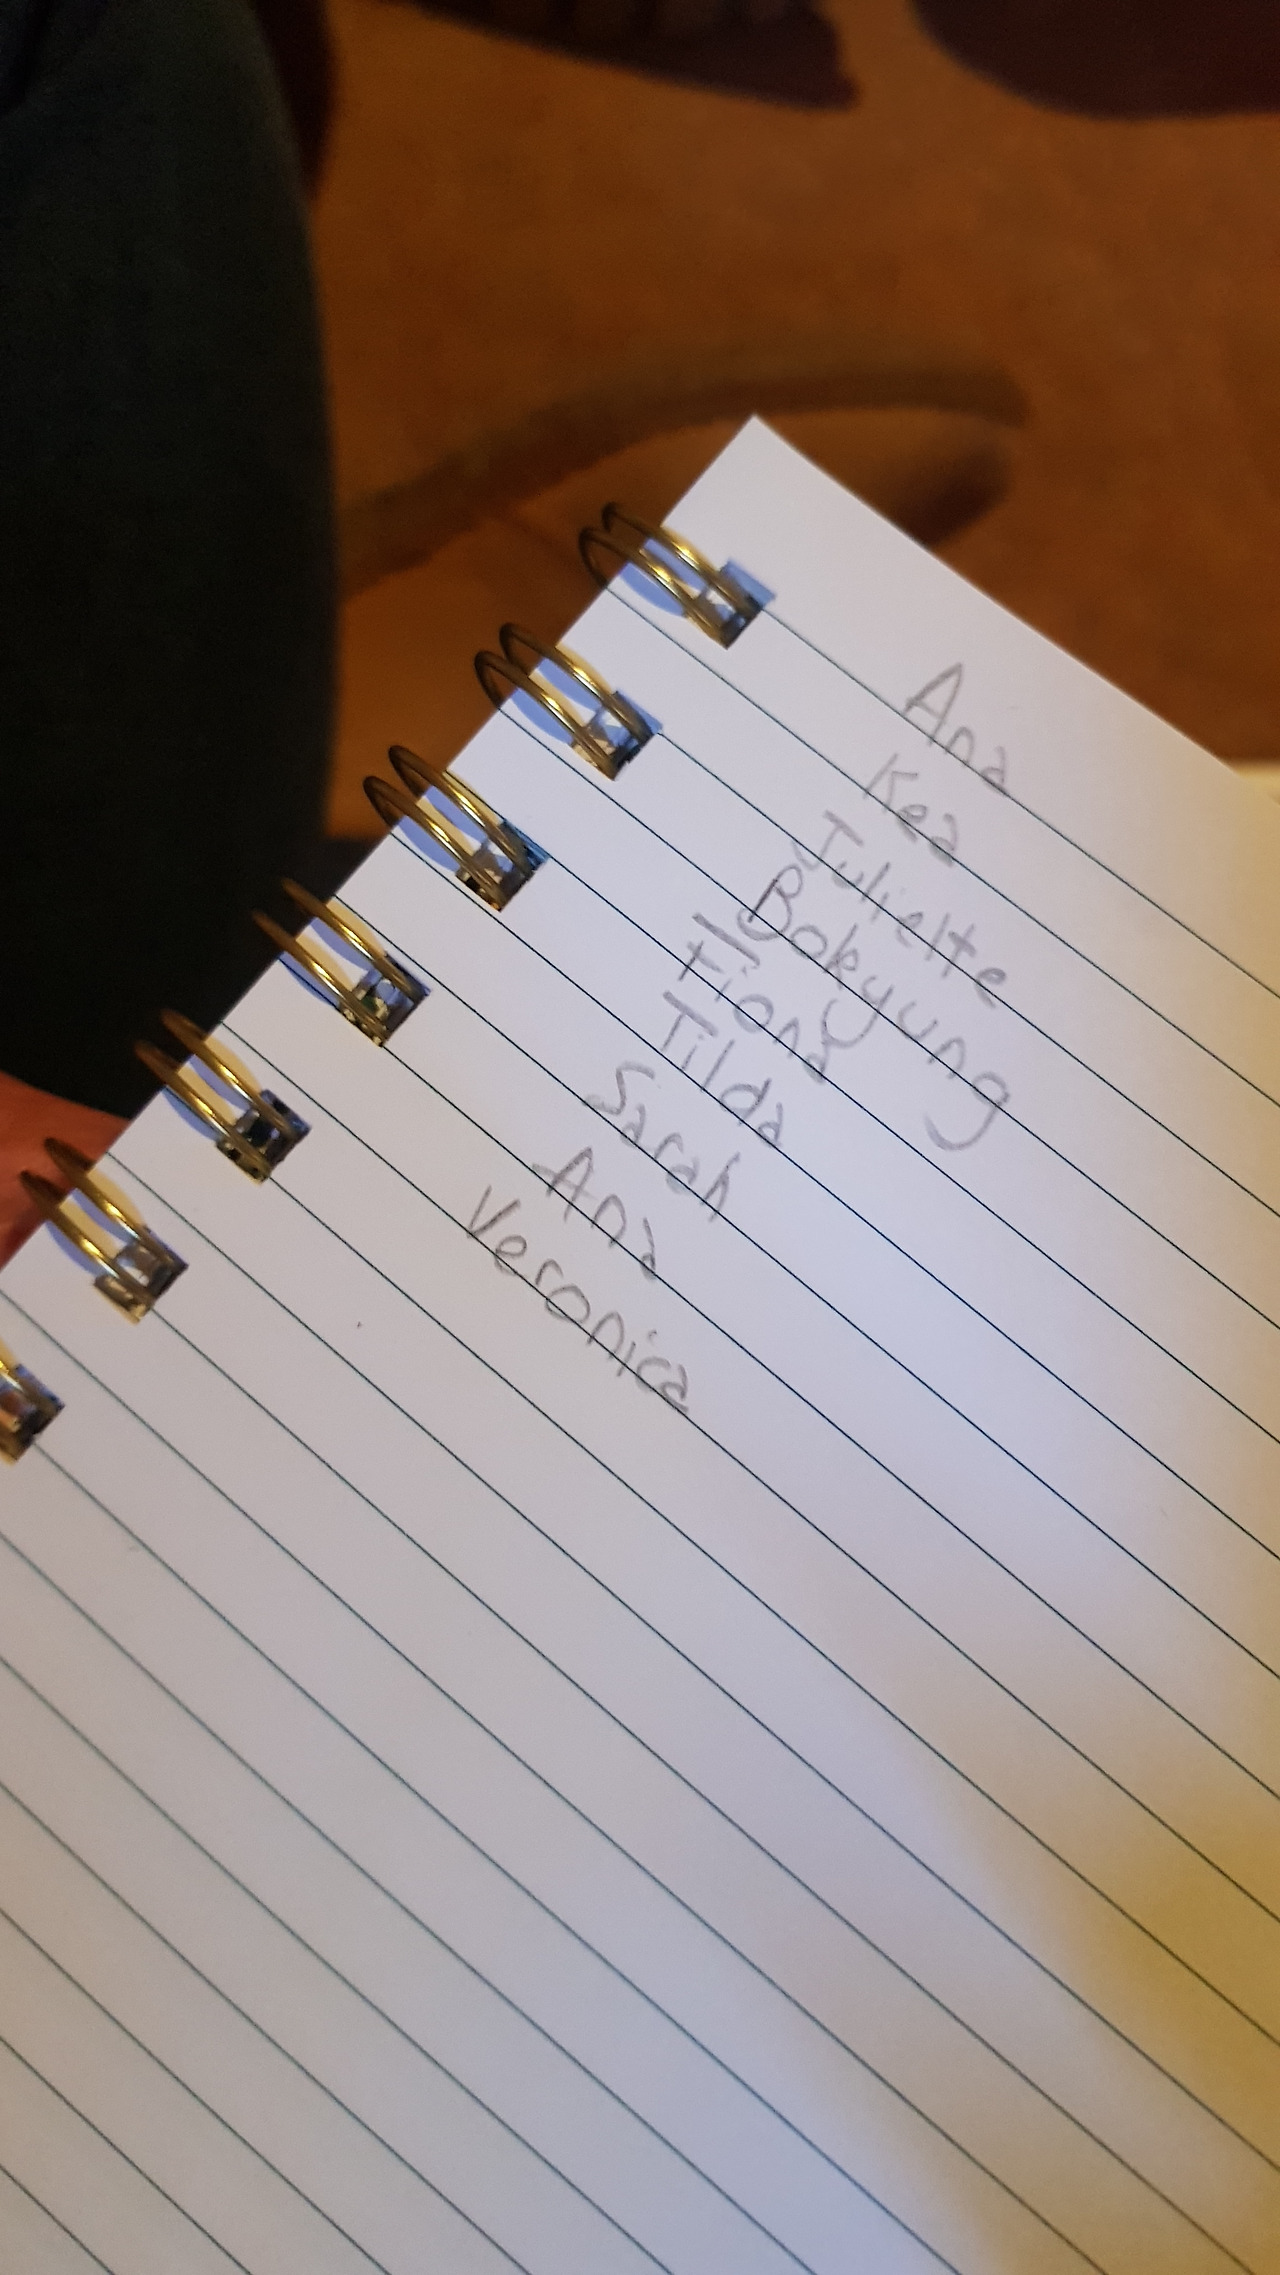 Ana
Kea
Juliette
Bokyung
Fiona
Tilda
Sarah
Ana
Veronica